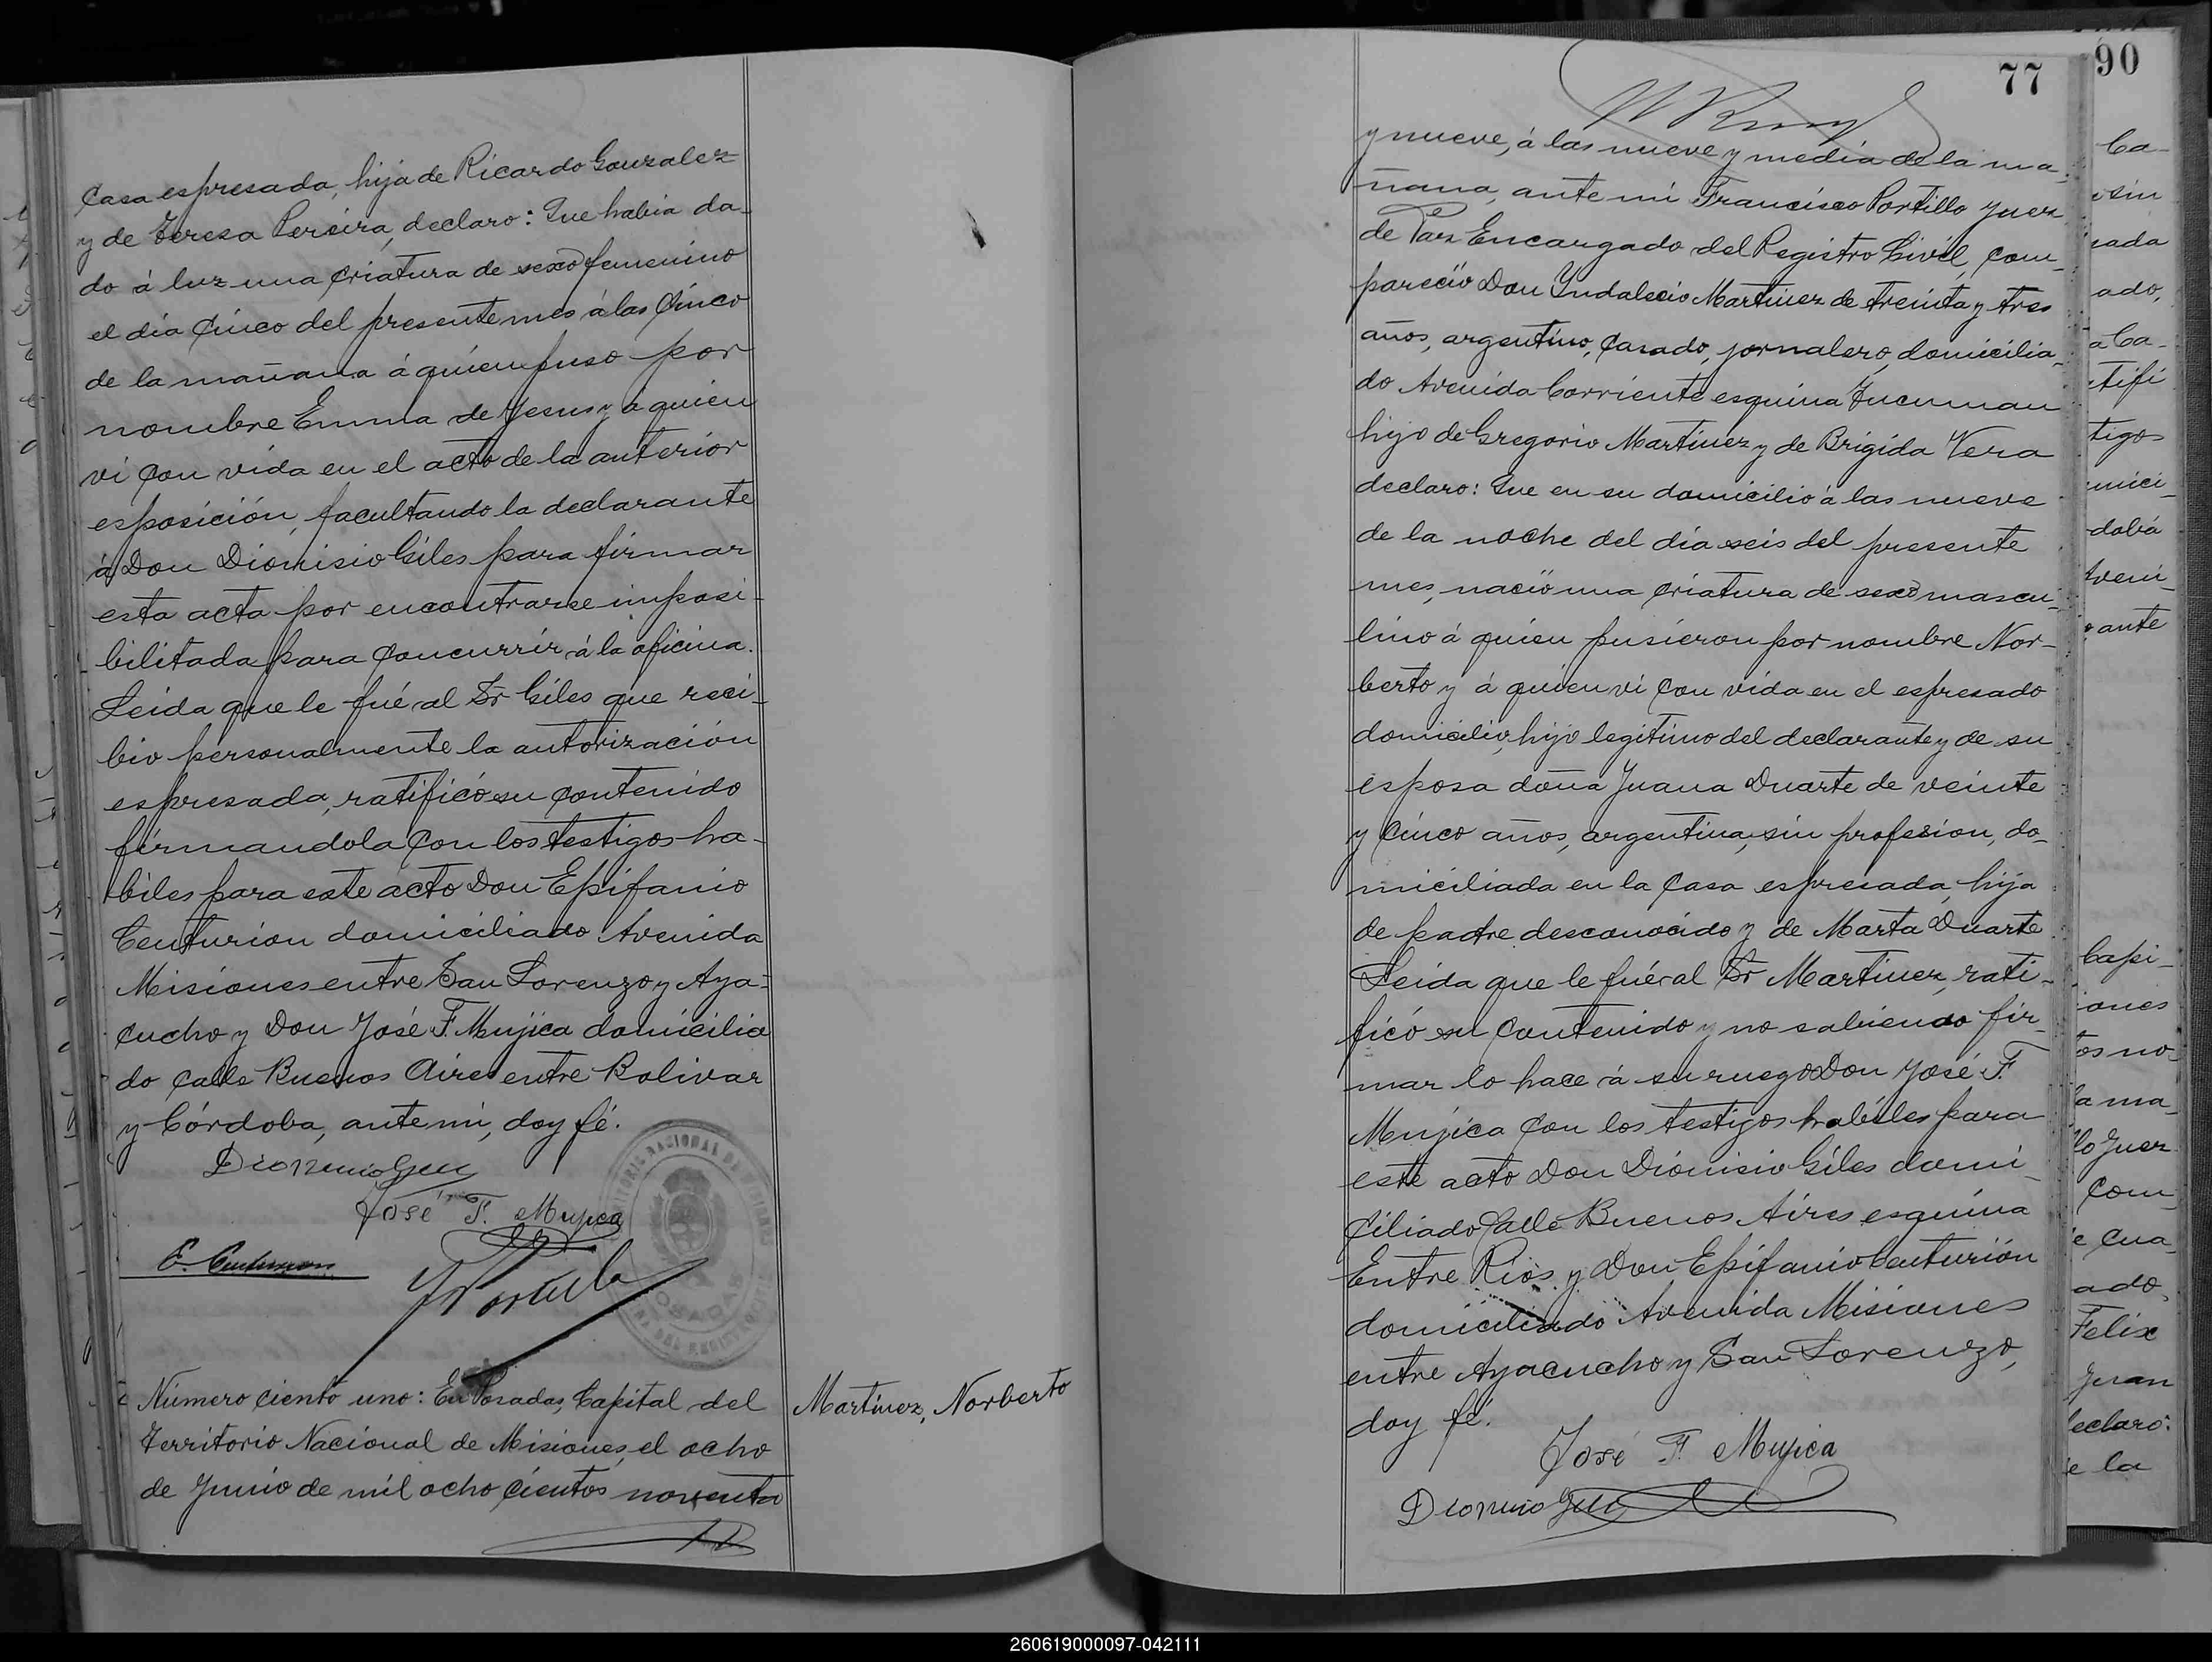 Casa espresada, hija de Ricardo Gonzalez
y de Teresa Pereira, declaro: Que habia da-
do á luz una criatura de sexo femenino
el día cinco del presente mes á las cinco
de la mañana á quien puso por
nombre Emma de Jesus y á quien
vi con vida en el acto de la anterior
esposición, facultando la declarante
á Don Dionisio Giles para firmar
esta acta por encontrarse imposi-
bilitada para concurrir á la oficina.
Leida que le fué al Sr Giles que reci-
bio personalmente la autorización
espresada, ratificó su contenido
firmandola con los testigos ha-
biles para este acto Don Epifanio
Centurion domiciliado Avenida
Misiones entre San Lorenzo y Aya-
cucho y Don José F. Mujica domicilia
do calle Buenos Aires entre Bolivar
y Córdoba, ante mi, doy fé.
Dionisio Giles
José F. Mujica
E. Centurion
F Portillo
Número ciento uno: En Posadas, Capital del
Territorio Nacional de Misiones, el ocho
de Junio de mil ocho cientos noventa
Martinez, Norberto
77
y nueve, á las nueve y media de la ma-
ñana, ante mi Francisco Portillo Juez
de Paz Encargado del Registro Civil, com-
pareció Don Yndalecio Martinez de treinta y tres
años, argentino, casado, jornalero, domicilia-
do Avenida Corriente esquina Tucuman
hijo de Gregorio Martinez y de Brigida Vera
declaro: Que en su domicilio á las nueve
de la noche del día seis del presente
mes, nació una criatura de sexo mascu-
lino á quien pusieron por nombre Nor-
berto y á quien vi con vida en el espresado
domicilio, hijo legitimo del declarante y de su
esposa doña Juana Duarte de veinte
y cinco años, argentina, sin profesion, do-
miciliada en la casa espresada, hija
de padre desconocido y de Marta Duarte
Leida que le fué al Sr Martinez, rati-
ficó su contenido y no sabiendo fir-
mar lo hace á su ruego Don José F.
Mujica con los testigos habiles para
este acto Don Dionisio Giles domi-
ciliado Calle Buenos Aires esquina
Entre Rios y Don Epifanio Centurión
domiciliado Avenida Misiones
entre Ayacucho y San Lorenzo,
doy fé.
José F. Mujica
Dionisio Giles
90
Ca-
sin
sada
ado,
a Ca-
tifi
tigos
mici-
doba
Aveni-
ante
Capi-
ones
os no-
a ma-
lo Juez
com-
e cua-
ado,
Felix
Juan
eclaro:
e la
260619000097-042111